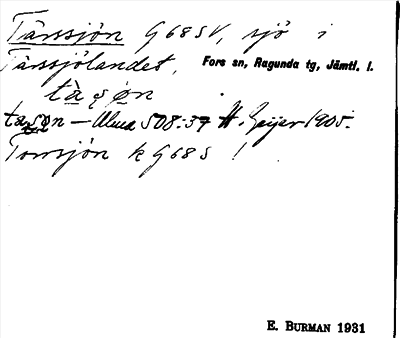 Tårssjön G 68 SV, sjö i
Tårssjölandet, Fors sn, Ragunda tg, Jämtl. l.
tàsøn
tasøn – Ulma 508:37 H. Geijer 1905.
Torrsjön k G 68 S !
E. BURMAN 1931